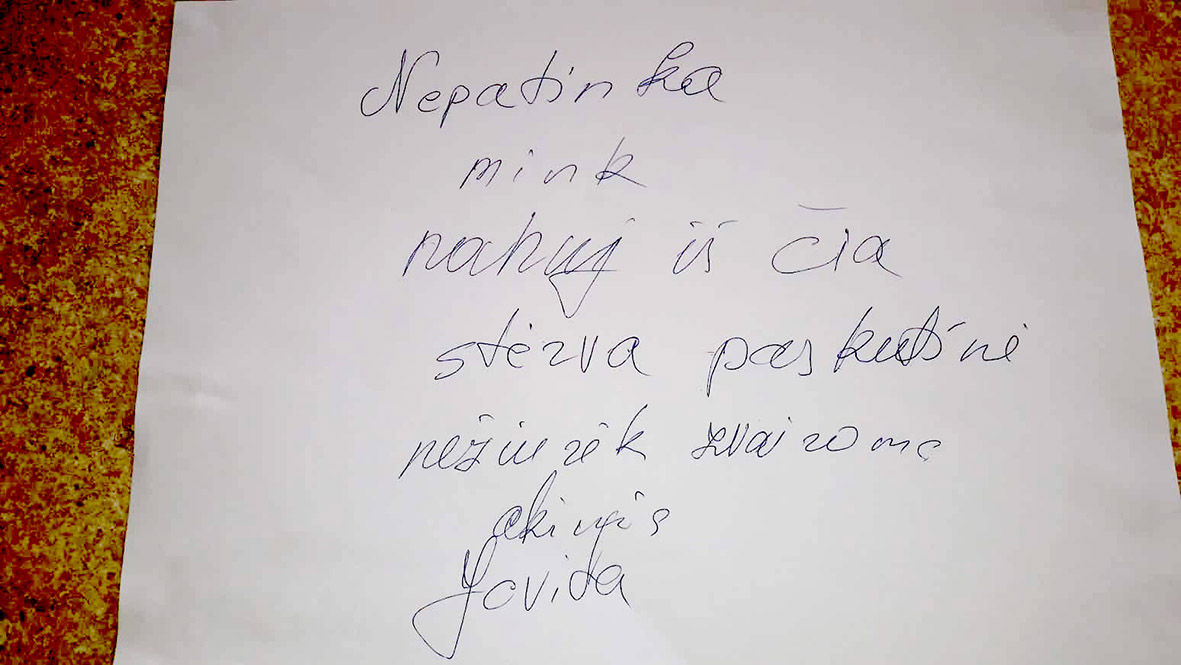 Nepatinka
mink
nahuj iš čia
stėrva paskutinė
nežiurėk zvairome
akimis
Jovita